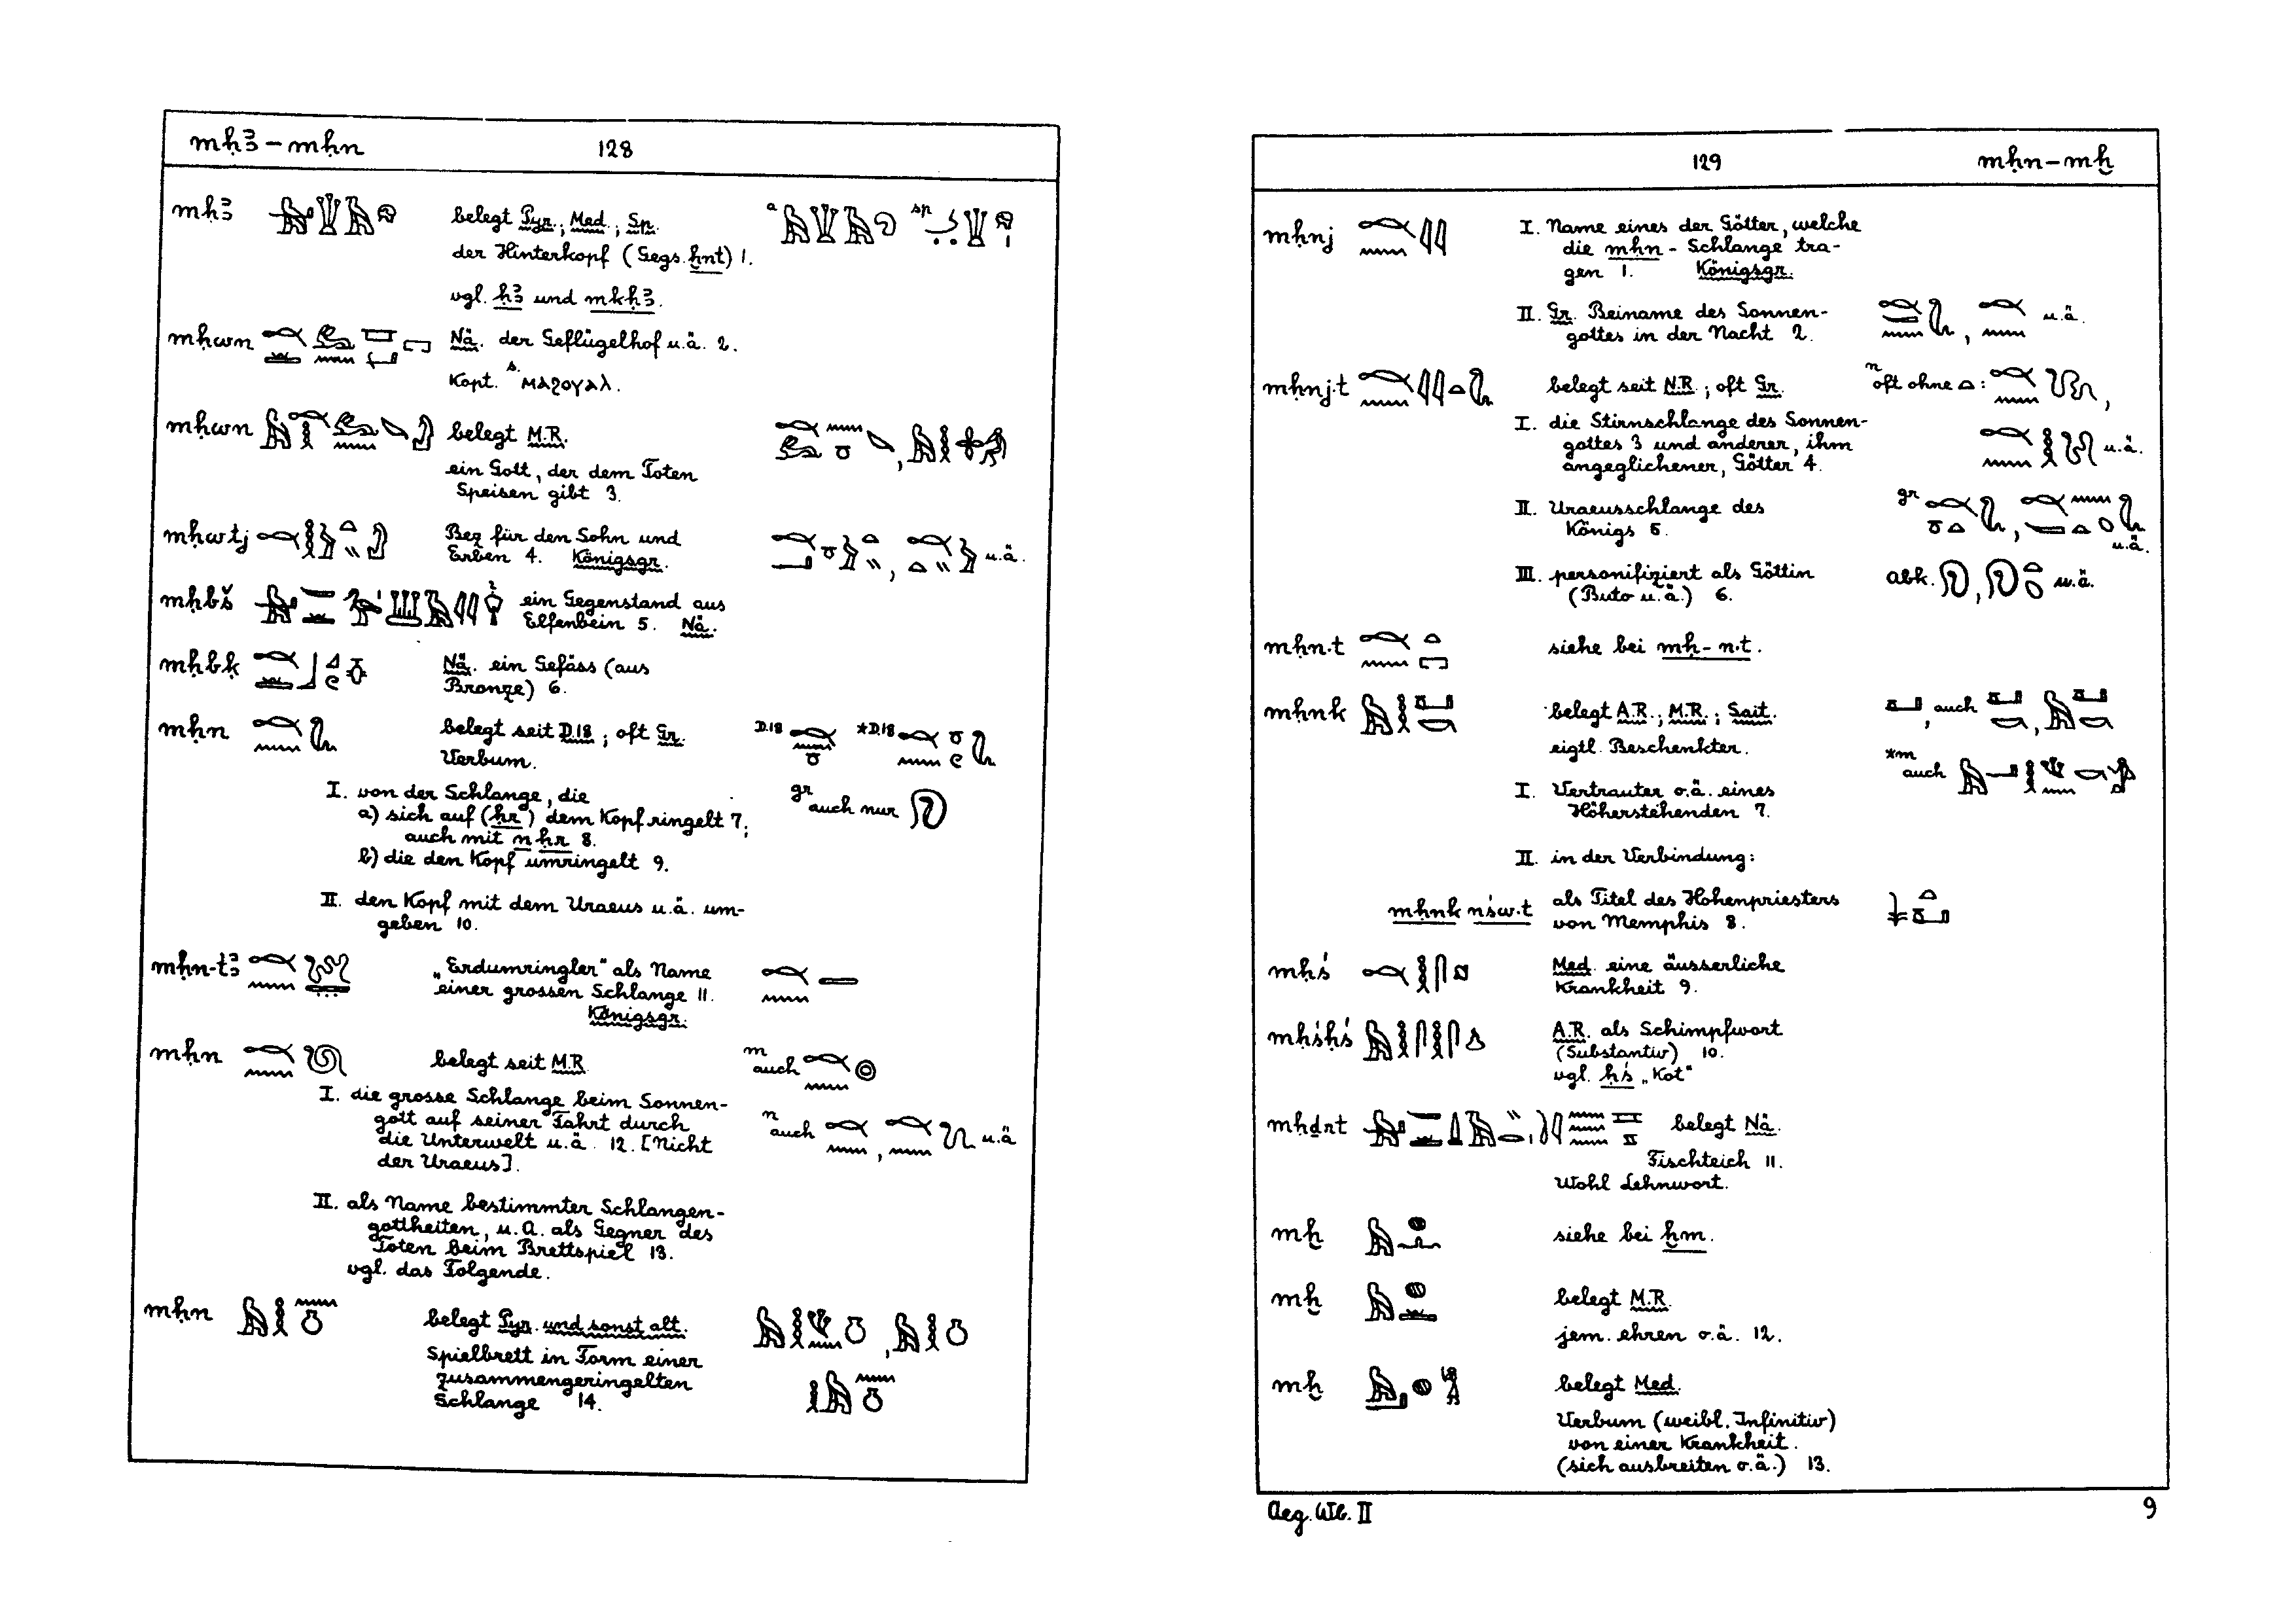 mḥꜣ – mḥn 128
mḥꜣ belegt Pyr.; Med.; Sp.
der Hinterkopf (Gegs. ḫnt) 1.
vgl. ḥꜣ und mkḥꜣ.
mḥwn Nä. der Geflügelhof u.ä. 2.
Kopt. s. ⲙⲁϩⲟⲩⲁⲗ.
mḥwn belegt M.R.
ein Gott, der dem Toten
Speisen gibt 3.
mḥwtj Bez für den Sohn und
Erben 4. Königsgr. u.ä.
mḥbš ein Gegenstand aus
Elfenbein 5. Nä.
mḥbḳ Nä. ein Gefäss (aus
Bronze) 6.
mḥn belegt seit D.18; oft Gr. D.18 *D.18
Verbum.
I. von der Schlange, die gr auch nur
a) sich auf (ḥr) dem Kopf ringelt 7;
auch mit n ḥr 8.
b) die den Kopf umringelt 9.
II. den Kopf mit dem Uraeus u.ä. um-
geben 10.
mḥn-tꜣ „Erdumringler“ als Name
einer grossen Schlange 11.
Königsgr.
mḥn belegt seit M.R. m auch
I. die grosse Schlange beim Sonnen-
gott auf seiner Fahrt durch n auch u.ä
die Unterwelt u.ä. 12. [Nicht
der Uraeus].
II. als Name bestimmter Schlangen-
gottheiten, u.A. als Gegner des
Toten beim Brettspiel 13.
vgl. das Folgende.
mḥn belegt Pyr. und sonst alt.
Spielbrett in Form einer
zusammengeringelten
Schlange 14.
129 mḥn – mḫ
mḥnj I. Name eines der Götter, welche
die mḥn - Schlange tra-
gen 1. Königsgr.
II. Gr. Beiname des Sonnen-
gottes in der Nacht 2. u.ä.
mḥnj.t belegt seit N.R.; oft Gr. n oft ohne
I. die Stirnschlange des Sonnen-
gottes 3 und anderer, ihm
angeglichener, Götter 4. u.ä.
II. Uraeusschlange des gr
Königs 5. u.ä.
III. personifiziert als Göttin abk. u.ä.
(Buto u.ä.) 6.
mḥn.t siehe bei mḥ-n.t.
mḥnk belegt A.R.; M.R.; Sait. auch
eigtl. Beschenkter. *m auch
I. Vertrauter o.ä. eines
Höherstehenden 7.
II. in der Verbindung:
mḥnk nśw.t als Titel des Hohenpriesters
von Memphis 8.
mḥś Med. eine äusserliche
Krankheit 9.
mḥśḥś A.R. als Schimpfwort
(Substantiv) 10.
vgl. ḥś „Kot“
mḥḏrt belegt Nä.
Fischteich 11.
Wohl Lehnwort.
mḫ siehe bei ḫm.
mḫ belegt M.R.
jem. ehren o.ä. 12.
mḫ belegt Med.
Verbum (weibl. Infinitiv)
von einer Krankheit.
(sich ausbreiten o.ä.) 13.
Aeg. Wb. II 9